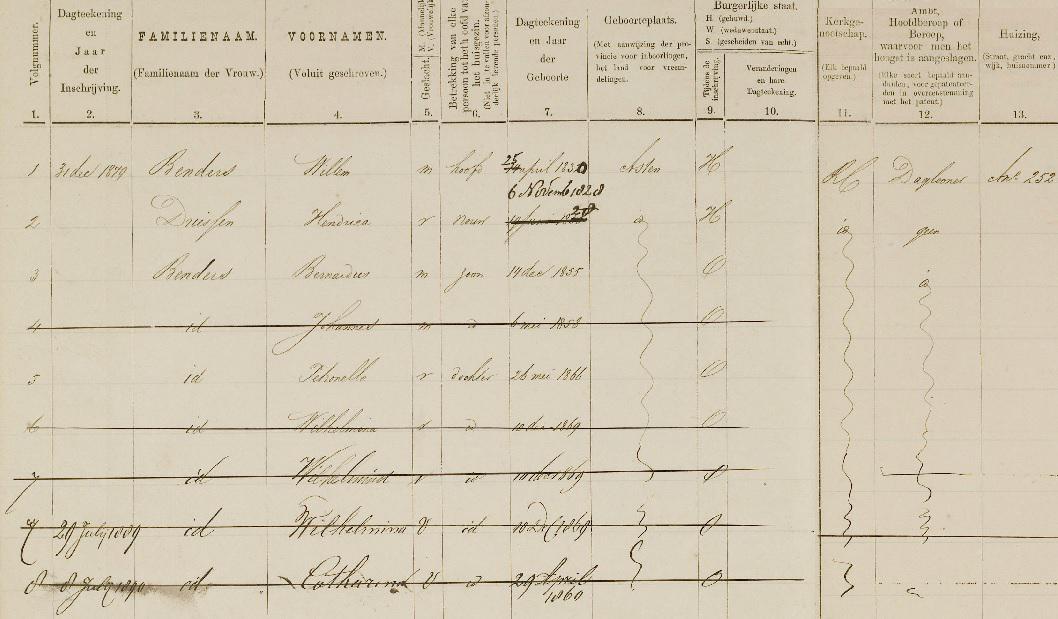 Volgnummer.
Dagteekening en Jaar der Inschrijving.
FAMILIENAAM.
(Familienaam der Vrouw.)
VOORNAMEN.
(Voluit geschreven.)
Geslacht. M. (Mannelijk) V. (Vrouwelijk)
Betrekking van elke persoon tot het hoofd van het huisgezin.
Dagteekening en Jaar der Geboorte
Geboorteplaats.
(Met aanwijzing der provincie voor inboorlingen, het land voor vreemdelingen.
Burgerlijke staat.
H. (gehuwd.)
W. (weduwenstaat.)
S. (gescheiden van echt.)
Tijdens de inschrijving.
Veranderingen en hare Dagteekening.
Kerkgenootschap.
(Elk bepaald opgeven.)
Ambt, Hoofdberoep of Beroep, waarvoor men het hoogst is aangeslagen.
(Elke soort bepaald aanduiden, voor gepatenteerden in overeenstemming met het patent.)
Huizing,
(Straat, gracht enz., wijk, huisnummer.)
1. 2. 3. 4. 5. 6. 7. 8. 9. 10. 11. 12. 13.
1 31 dec 1879 Renders Willem m hoofd 25 april 1830 Asten H RC Daglooner 252
6 Novemb 1828
2 Driessen Hendrica v vrouw id H id geen
3 Renders Bernardus m zoon 14 dec 1855 O id
4 id Johannes m id 6 mei 1858 O
5 id Petronella v dochter 26 mei 1866 O
6 id Wilhelmina v id 10 dec 1869 O
7 id Wilhelmina v id 10 dec 1869 O
7 29 July 1889 id Wilhelmina V id 10 1869 O
8 8 July 1890 id Catharina V id 29 April 1860 O